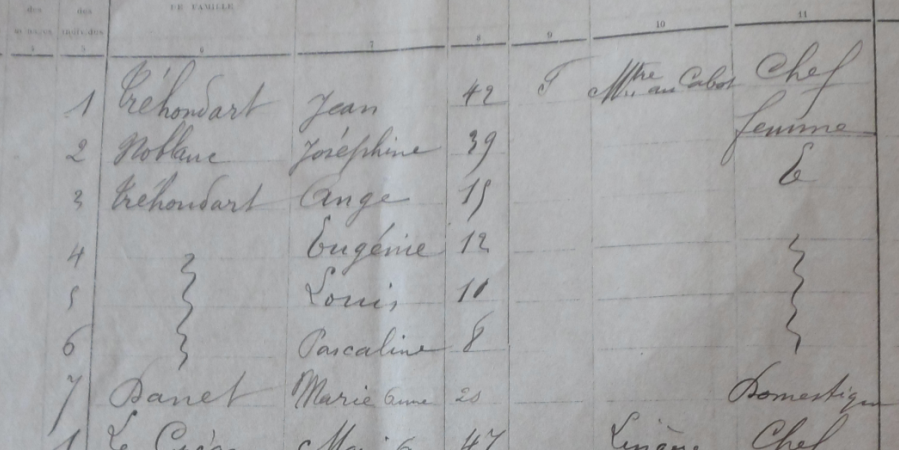 des des DE FAMILLE
4 5 6 7 8 9 10 11
1 Tréhondart Jean 42 F Mtre au Cabot Chef
2 Noblanc Joséphine 39 femme
3 Tréhondart Ange 15 E
4 Eugénie 12
5 Louis 10
6 Pascaline 8
7 Danet Marie Anne 20 Domestique
1 Le 47 Lingère Chef